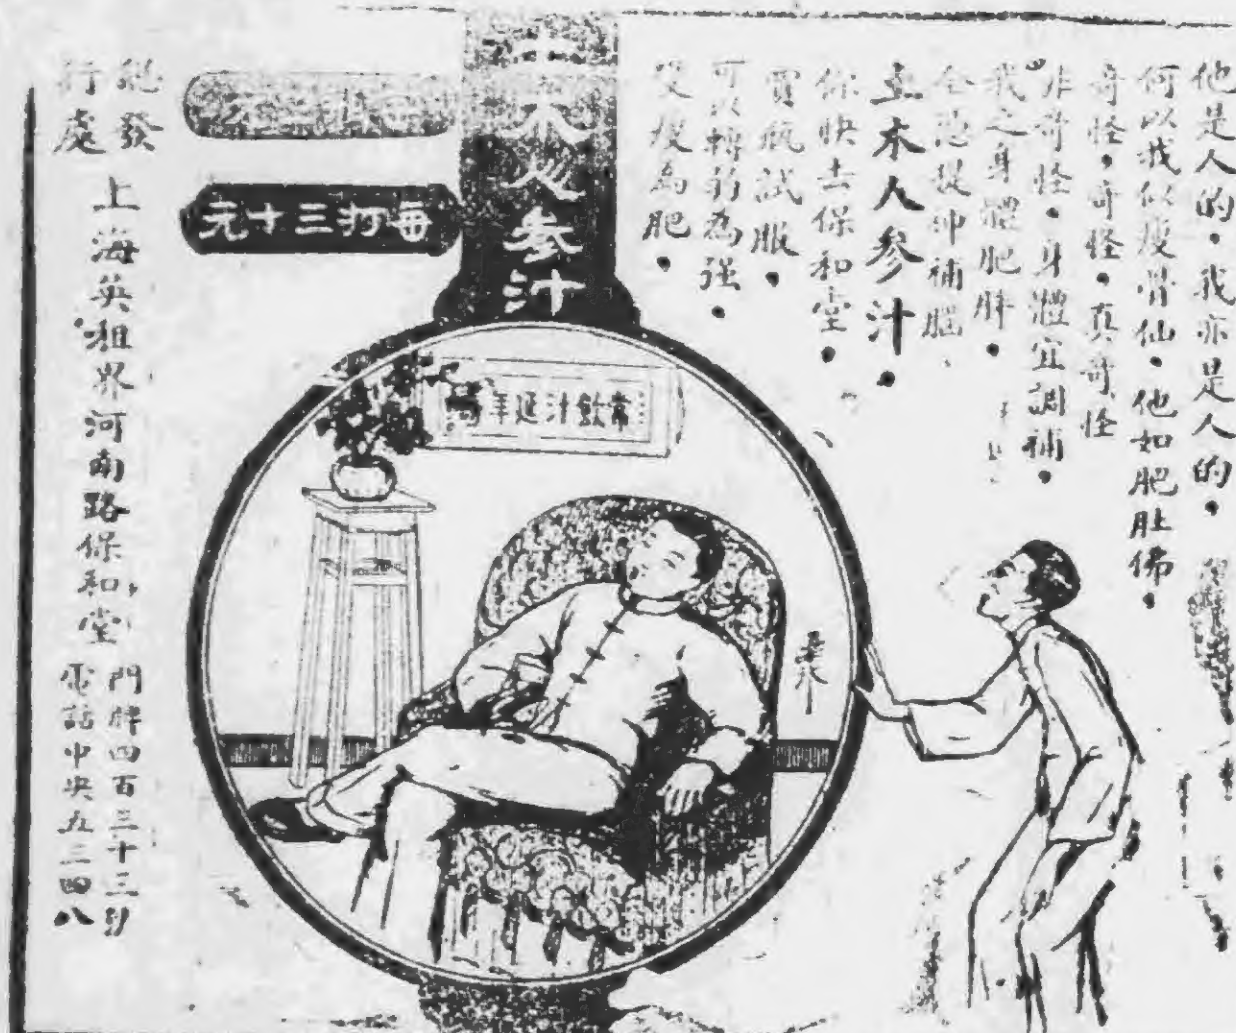 他是人的．我亦是人的．
何以我似瘦骨仙．他如肥肚佛．
奇怪．奇怪．真奇怪
非奇怪．身體宜調補．
我之身體肥胖．
全憑提神補腦
土木人參汁．
你快去保和堂．
買瓶試服．
可以轉弱為強．
又瘦為肥．
人參汁
每打三十元
常飲汁延年
總發行處
上海英租界河南路保和堂
門牌四百三十三號
電話中央五三四八